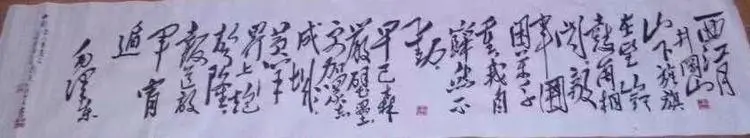 西江月
井岡山
山下旌旗
在望山头
鼓角相
闻敵
軍圍
困万千
重我自
巋然不
動
早已森
嚴壁壘
更加众志
成城
黄洋
界上炮
声隆
报道敌
軍宵
遁
毛泽东